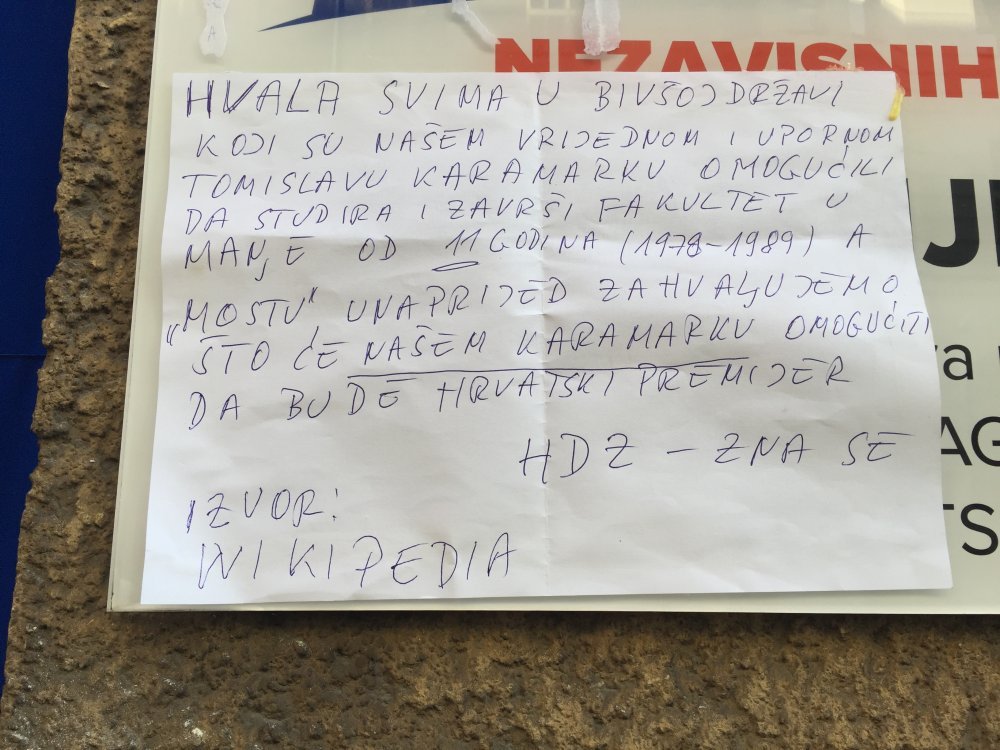 NEZAVISNIH
HVALA SVIMA U BIVŠOJ DRŽAVI
KOJI SU NAŠEM VRIJEDNOM I UPORNOM
TOMISLAVU KARAMARKU OMOGUĆILI
DA STUDIRA I ZAVRŠI FAKULTET U
MANJE OD 11 GODINA (1978-1989) A
„MOSTU" UNAPRIJED ZAHVALJUJEMO
ŠTO ĆE NAŠEM KARAMARKU OMOGUĆITI
DA BUDE HRVATSKI PREMIJER
HDZ - ZNA SE
IZVOR:
WIKIPEDIA